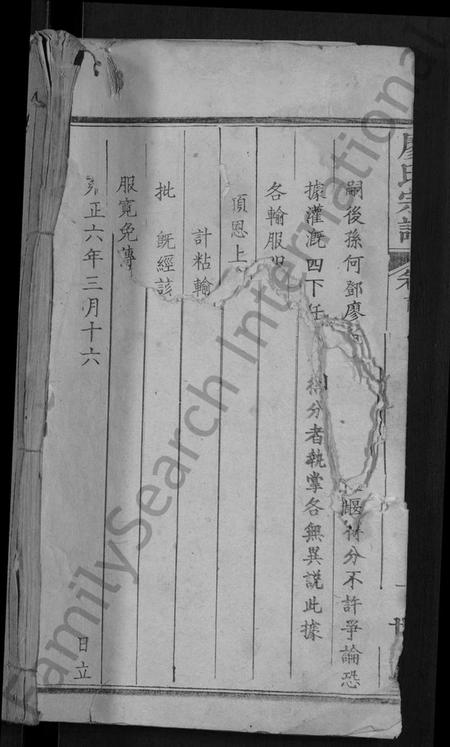 廖氏宗譜
嗣後孫何鄧廖 堰 分不許爭論恐
據灌溉四下任 分者執掌各無異説此據
各輪服
頂恩上
計粘輪
批 既經該
服寬免
雍正六年三月十六 日立
FamilySearch International